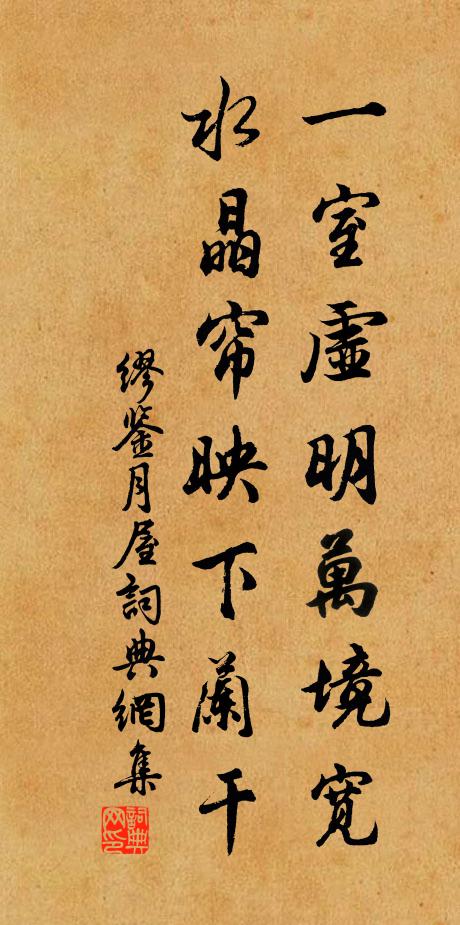 一室虛明萬境寬
水晶帘映下蘭干
繆鑒月屋詞典網集
詞典网印